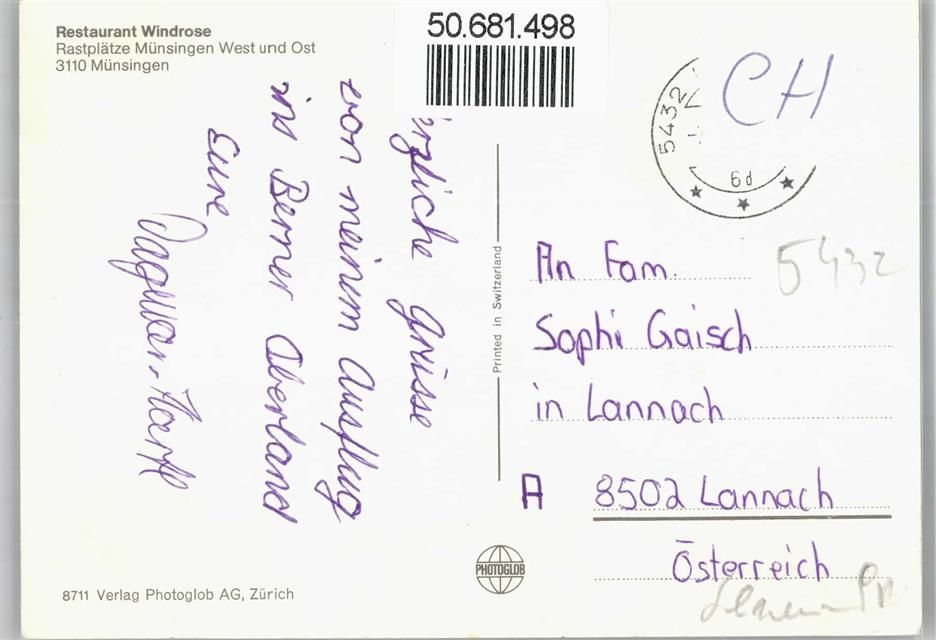 Restaurant Windrose
Rastplätze Münsingen West und Ost
3110 Münsingen
50.681.498
CH
5432
6d
rzliche Grüsse
von meinem Ausflug
ins Berner Oberland
Eure
Printed in Switzerland
An Fam.
5432
Sophi Gaisch
in Lannach
A 8502 Lannach
Österreich
PHOTOGLOB
8711 Verlag Photoglob AG, Zürich